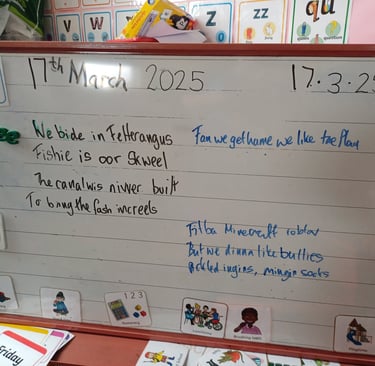 z
zz
qu
v
w
17th March 2025
17.3.25
We bide in Fetterangus
Fishie is oor Skweel
The canal wis nivver built
To bring the fash in creels
Fan we get hame we like tae play
Fitba Minecraft roblox
But we dinna like bullies
Pickled ingins, mingin socks
1 2 3
Friday